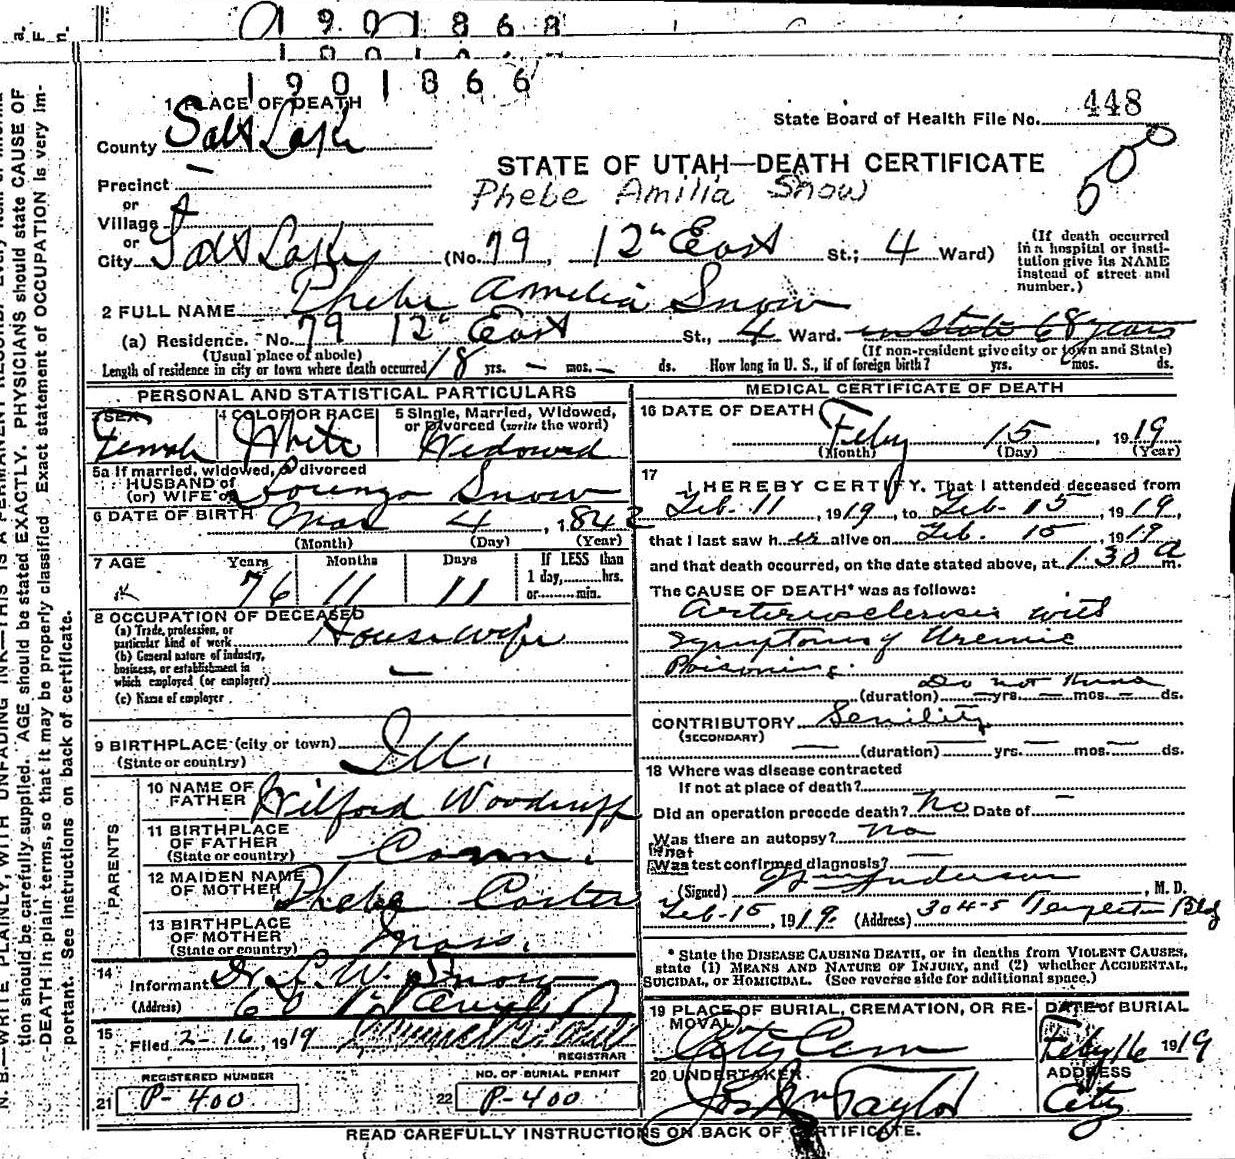 1901868
1901866
1 PLACE OF DEATH
State Board of Health File No. 448
County Salt Lake
STATE OF UTAH—DEATH CERTIFICATE
Precinct
Phebe Amilia Snow
or
Village
or
City Salt Lake (No. 79, 12th East St.; 4 Ward)
(If death occurred in a hospital or institution give its NAME instead of street and number.)
2 FULL NAME Phebe Amelia Snow
(a) Residence. No. 79 12th East St., 4 Ward. in State 68 years
(Usual place of abode) (If non-resident give city or town and State)
Length of residence in city or town where death occurred 18 yrs. — mos. — ds. How long in U. S., if of foreign birth? yrs. mos. ds.
PERSONAL AND STATISTICAL PARTICULARS
SEX Female
4 COLOR OR RACE White
5 Single, Married, Widowed, or Divorced (write the word) Widowed
5a If married, widowed, or divorced
HUSBAND of
(or) WIFE of Lorenzo Snow
6 DATE OF BIRTH Mar 4, 1842
(Month) (Day) (Year)
7 AGE Years Months Days If LESS than
76 11 11 1 day, hrs.
or min.
8 OCCUPATION OF DECEASED
(a) Trade, profession, or
particular kind of work Housewife
(b) General nature of industry,
business, or establishment in
which employed (or employer) —
(c) Name of employer
9 BIRTHPLACE (city or town) Ill.
(State or country)
PARENTS
10 NAME OF FATHER Wilford Woodruff
11 BIRTHPLACE OF FATHER Conn.
(State or country)
12 MAIDEN NAME OF MOTHER Phebe Carter
13 BIRTHPLACE OF MOTHER Mass.
(State or country)
14
Informant L. W. Snow
(Address)
15 Filed 2-16, 1919
REGISTRAR
REGISTERED NUMBER
21 P-400
NO. OF BURIAL PERMIT
22 P-400
MEDICAL CERTIFICATE OF DEATH
16 DATE OF DEATH
Feby 15, 1919
(Month) (Day) (Year)
17
I HEREBY CERTIFY, That I attended deceased from
Feb. 11, 1919, to Feb. 15, 1919,
that I last saw her alive on Feb. 15, 1919
and that death occurred, on the date stated above, at 1:30 a m.
The CAUSE OF DEATH* was as follows:
Arteriosclerosis with
symptoms of Uremic
Poisoning.
Do not know
(duration) — yrs. — mos. — ds.
CONTRIBUTORY Senility
(SECONDARY)
— (duration) — yrs. — mos. — ds.
18 Where was disease contracted
If not at place of death?
Did an operation precede death? No Date of —
Was there an autopsy? no
What
Was test confirmed diagnosis? —
(Signed) Wm Anderson, M. D.
Feb-15, 1919. (Address) 304-5 Templeton Bldg
* State the DISEASE CAUSING DEATH, or in deaths from VIOLENT CAUSES,
state (1) MEANS AND NATURE OF INJURY, and (2) whether ACCIDENTAL,
SUICIDAL, or HOMICIDAL. (See reverse side for additional space.)
19 PLACE OF BURIAL, CREMATION, OR REMOVAL
City Cem
DATE of BURIAL
Feby 16 1919
20 UNDERTAKER
Jos Wm Taylor
ADDRESS
City
READ CAREFULLY INSTRUCTIONS ON BACK OF CERTIFICATE.
N. B.—WRITE PLAINLY, WITH UNFADING INK—THIS IS A PERMANENT RECORD.
tion should be carefully supplied. AGE should be stated EXACTLY. PHYSICIANS should state CAUSE OF
DEATH in plain terms, so that it may be properly classified. Exact statement of OCCUPATION is very im-
portant. See instructions on back of certificate.